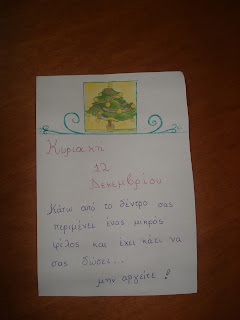 Κυριακή
12
Δεκεμβρίου
Κάτω από το δέντρο σας
περιμένει ένας μικρός
φίλος και έχει κάτι να
σας δώσει...
μην αργείτε!